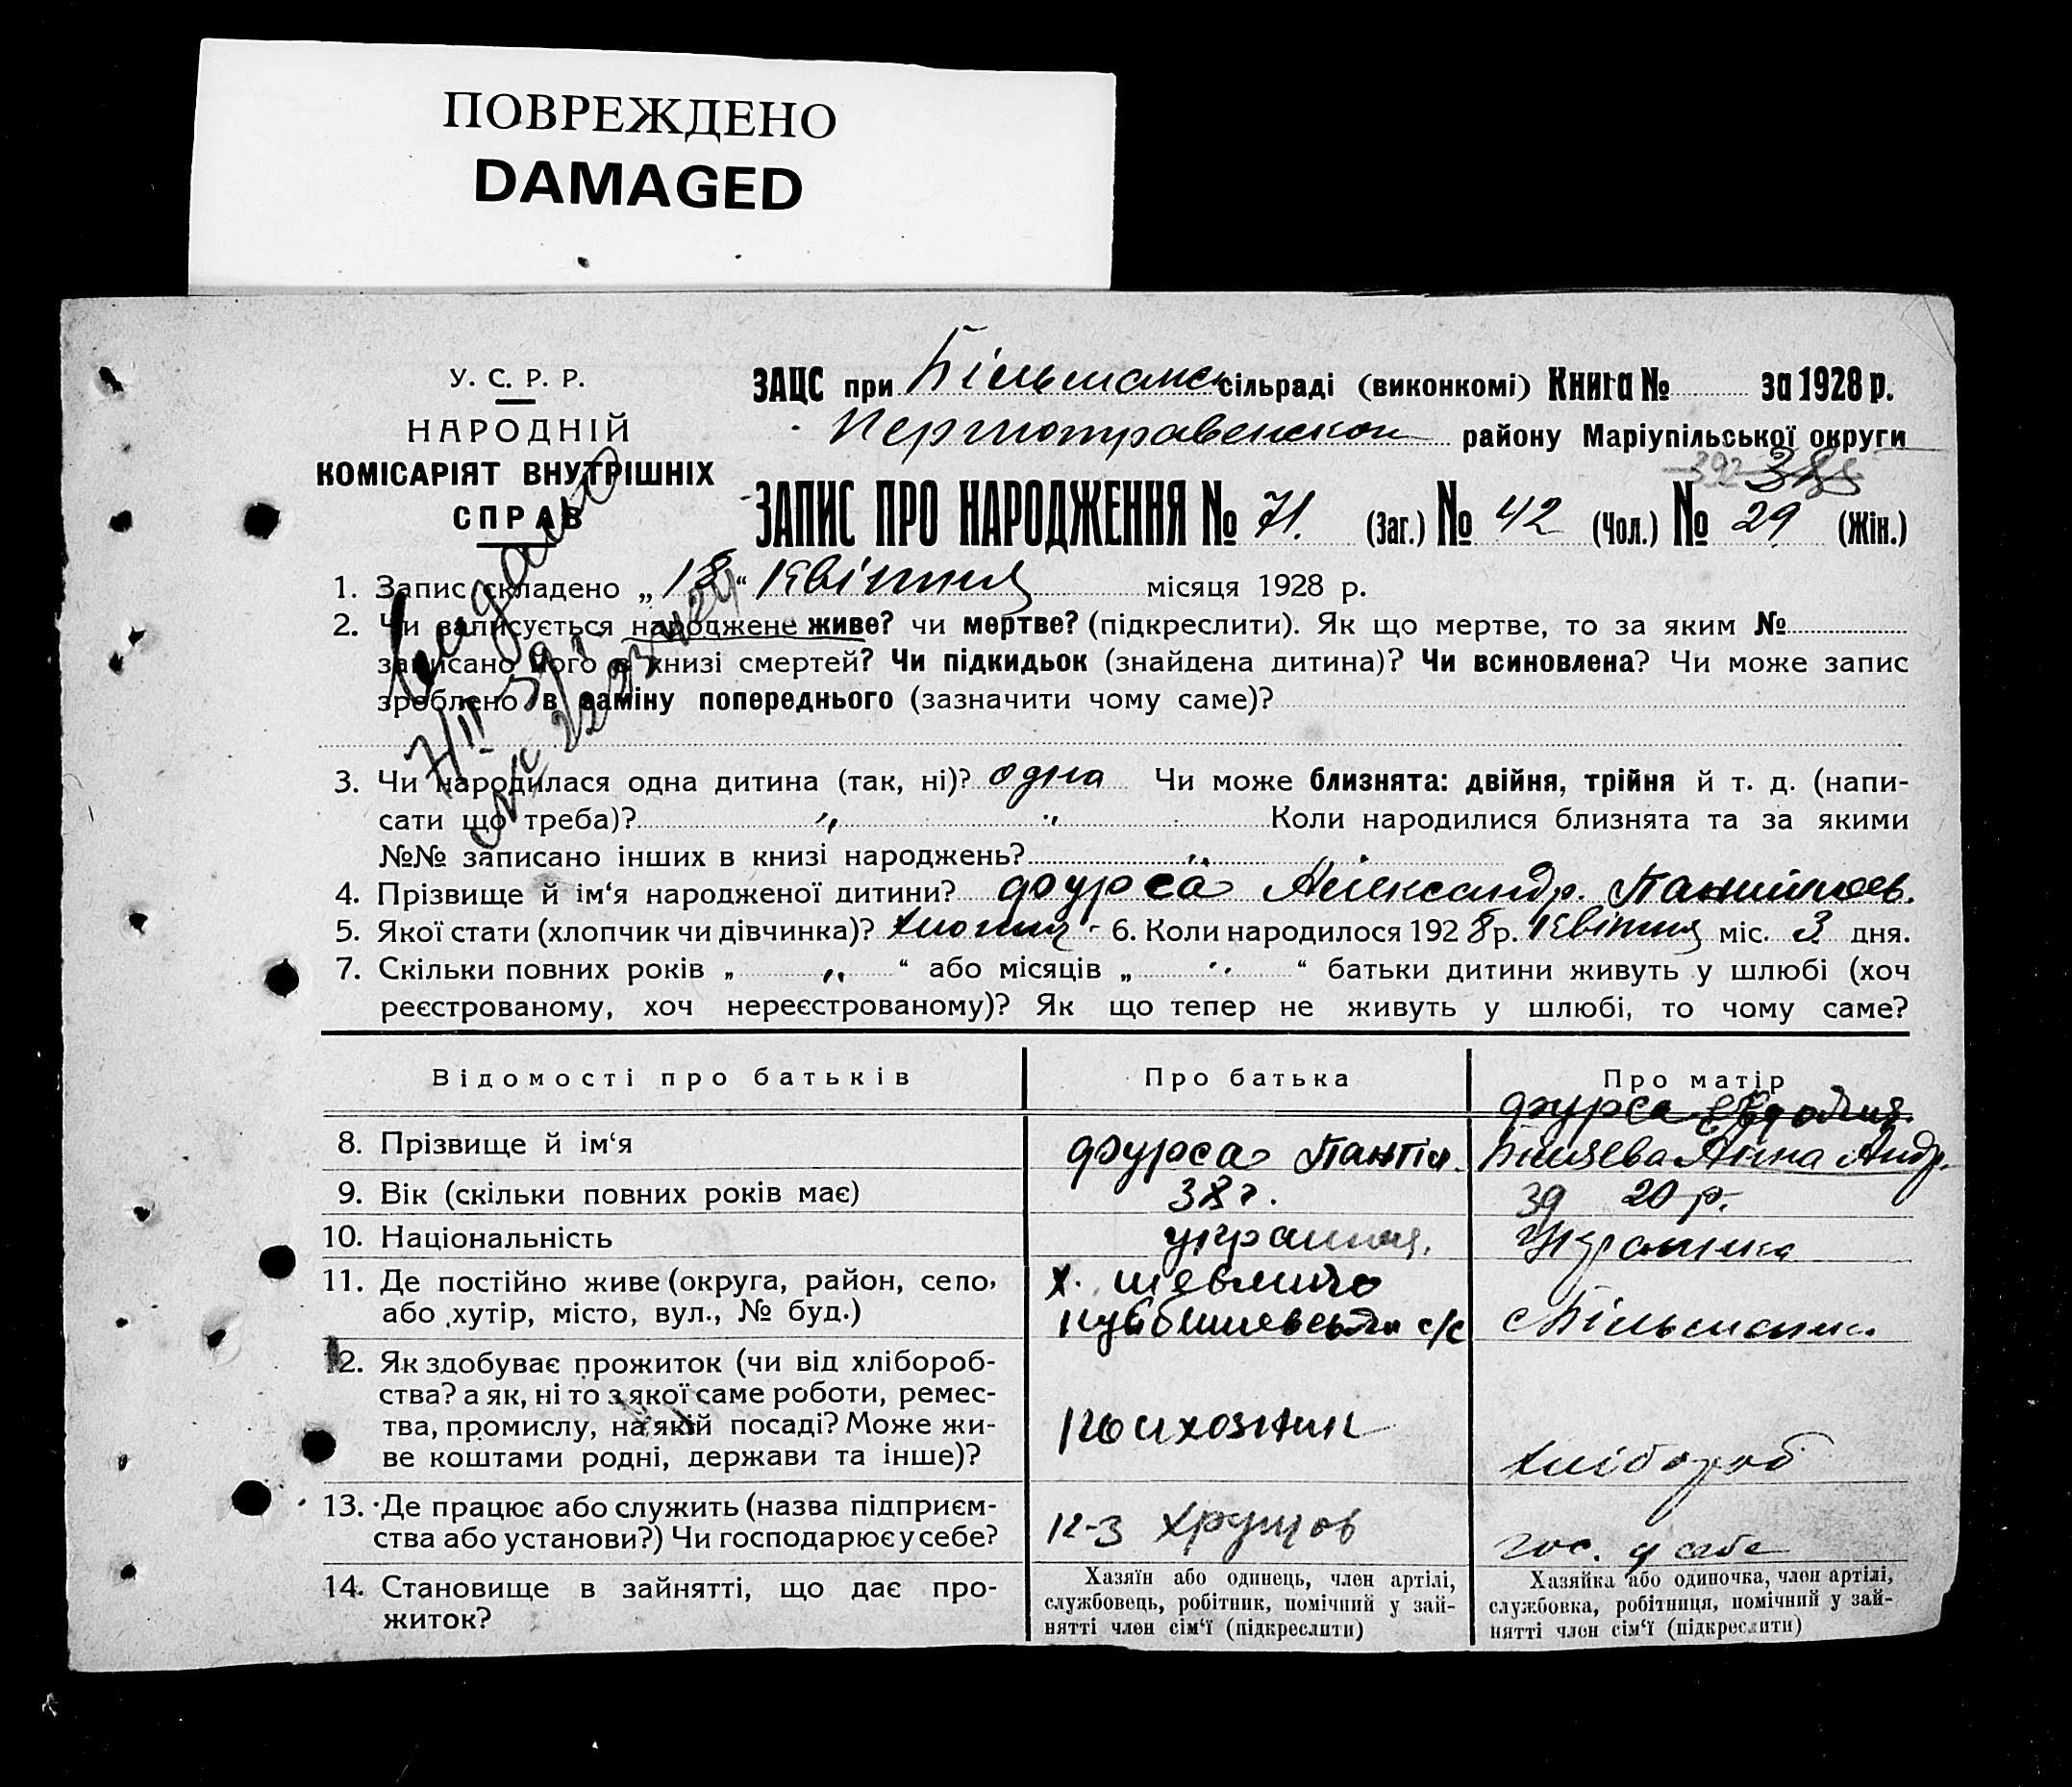 ПОВРЕЖДЕНО
DAMAGED
У. С. Р. Р.
НАРОДНІЙ
КОМІСАРІЯТ ВНУТРІШНІХ
СПРАВ
ЗАЦС при Більманс сільраді (виконкомі) Книга № за 1928 р.
району Маріупільської округи
392
ЗАПИС ПРО НАРОДЖЕННЯ № 71. (Заг.) № 42 (Чол.) № 29 (Жін.)
1. Запис складено „18“ Квітня місяця 1928 р.
2. Чи записується народжене живе? чи мертве? (підкреслити). Як що мертве, то за яким №
записано його в книзі смертей? Чи підкидьок (знайдена дитина)? Чи всиновлена? Чи може запис
зроблено в заміну попереднього (зазначити чому саме)?
3. Чи народилася одна дитина (так, ні)? одна Чи може близнята: двійня, трійня й т. д. (напи-
сати що треба)? „ „ Коли народилися близнята та за якими
№№ записано інших в книзі народжень? „
4. Прізвище й ім‘я народженої дитини? Фурса Александр.
5. Якої стати (хлопчик чи дівчинка)? 6. Коли народилося 1928 р. Квітня міс. 3 дня.
7. Скільки повних років „ „ “ або місяців „ „ “ батьки дитини живуть у шлюбі (хоч
реєстрованому, хоч нереєстрованому)? Як що тепер не живуть у шлюбі, то чому саме?
Відомості про батьків Про батька Про матір
Фурса
8. Прізвище й ім‘я Фурса Анна Андр.
9. Вік (скільки повних років має) 38 г. 39 20 р.
10. Національність українц. Українка
11. Де постійно живе (округа, район, село,
або хутір, місто, вул., № буд.) х. с/с с Більманка
12. Як здобуває прожиток (чи від хлібороб-
ства? а як, ні то з якої саме роботи, ремес-
тва, промислу, на якій посаді? Може жи-
ве коштами родні, держави та інше)? колхозник хлібороб
13. Де працює або служить (назва підприєм-
ства або установи?) Чи господарює у себе? к-з Хрущов гос. у себе
14. Становище в зайнятті, що дає про-
житок?
Хазяїн або одинець, член артілі,
службовець, робітник, помічний у зай-
нятті член сім‘ї (підкреслити)
Хазяйка або одиночка, член артілі,
службовка, робітниця, помічний у зай-
нятті член сім‘ї (підкреслити)